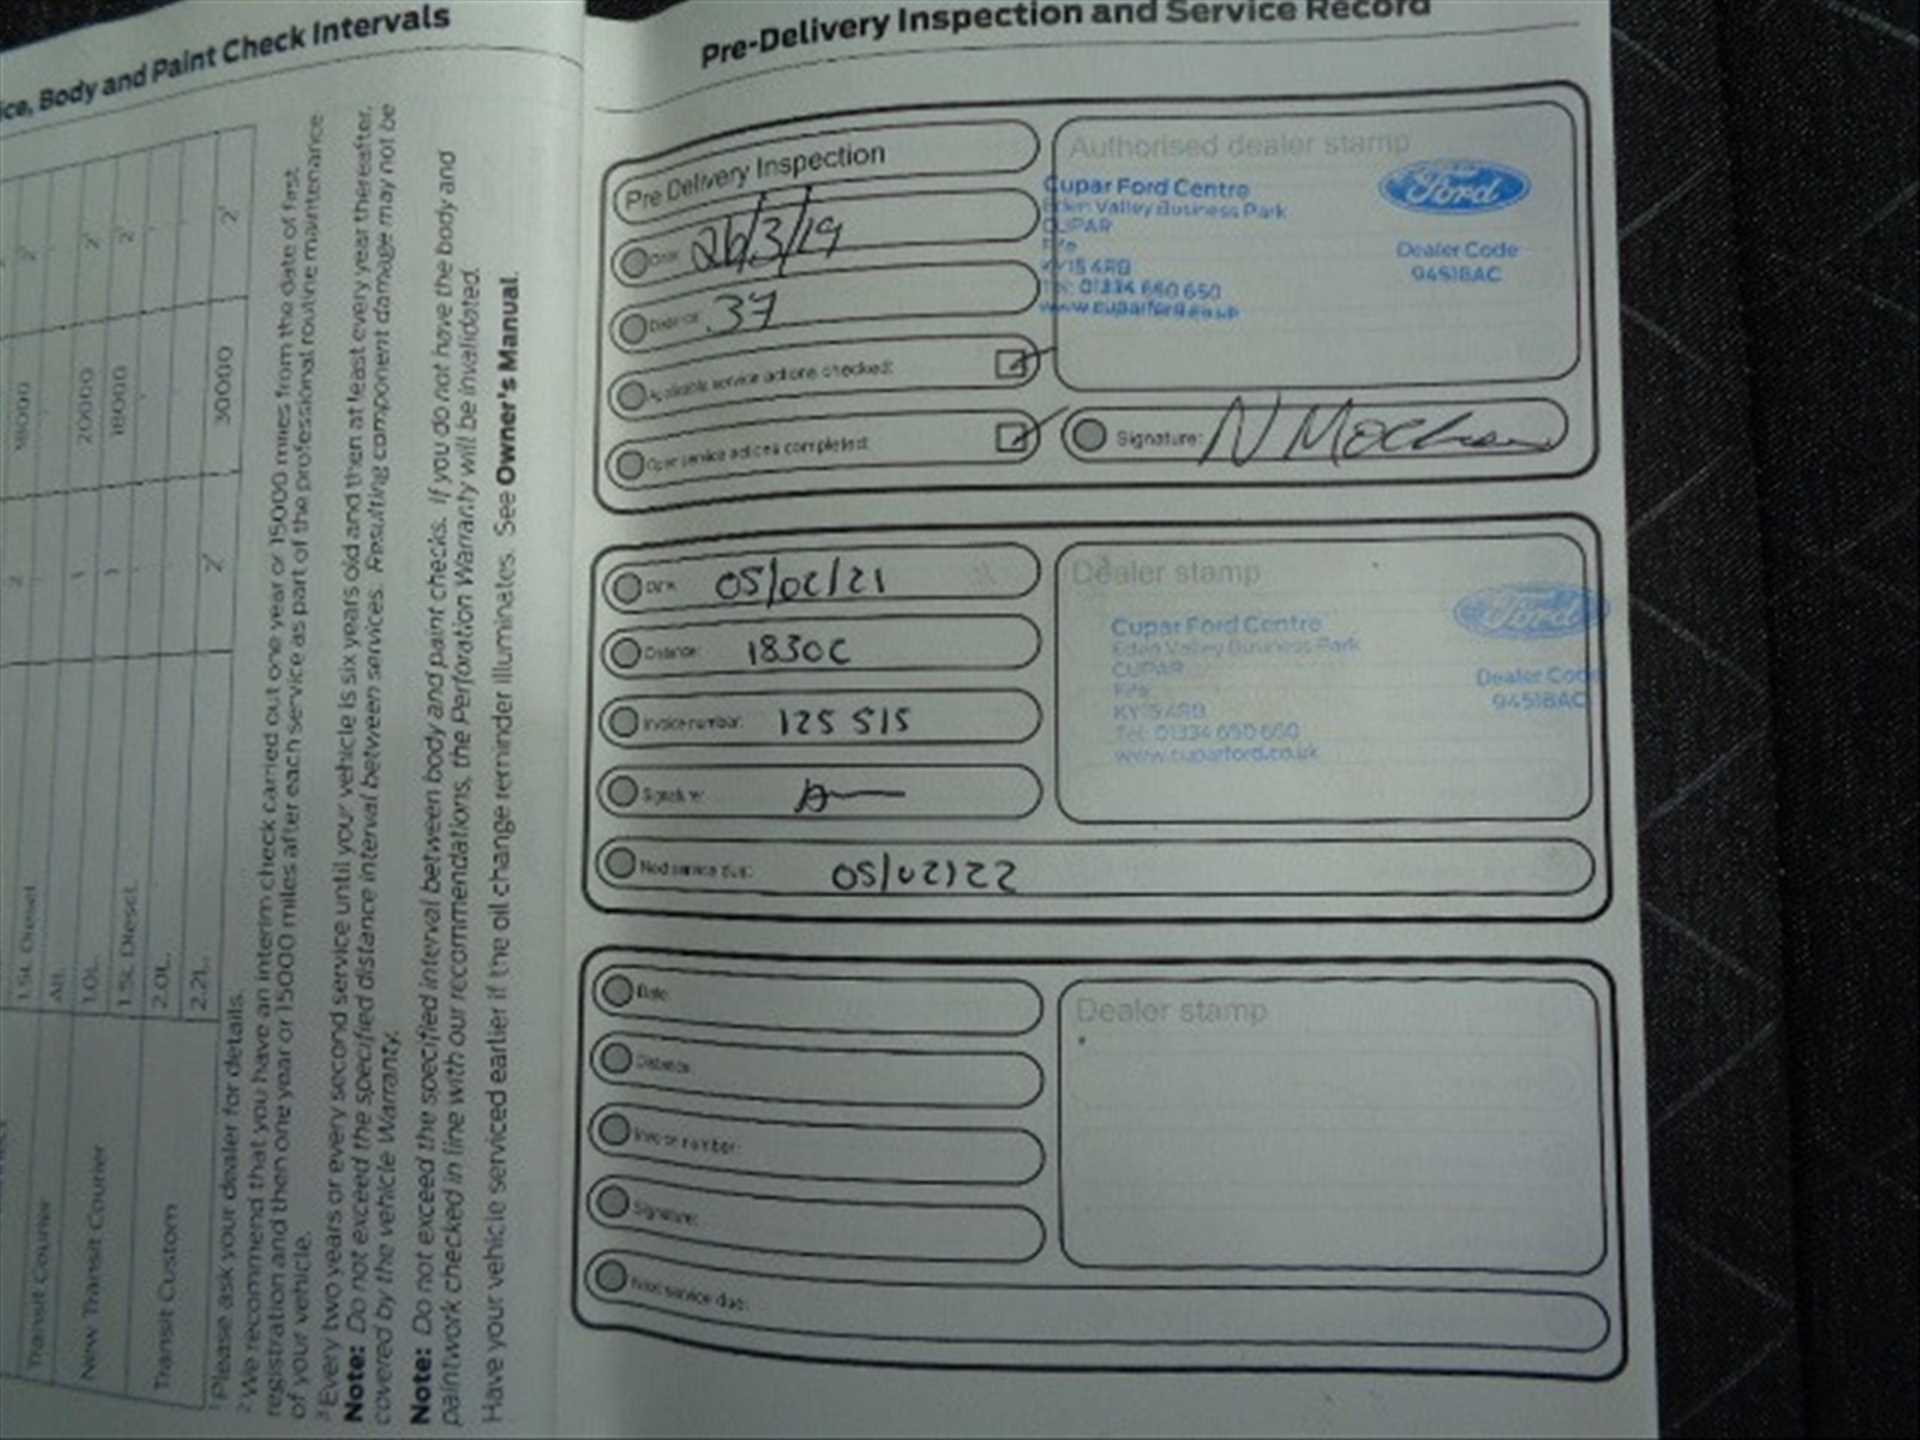 ice, Body and Paint Check Intervals
2
18000
2
1.5L Diesel
All
Transit Courier
1.0L
1
20000
2
New Transit Courier
1.5L Diesel
1
18000
2
2.0L
Transit Custom
2.2L
2
30000
2
1 Please ask your dealer for details.
2 We recommend that you have an interim check carried out one year or 15000 miles from the date of first
registration and then one year or 15000 miles after each service as part of the professional routine maintenance
of your vehicle.
3 Every two years or every second service until your vehicle is six years old and then at least every year thereafter.
Note: Do not exceed the specified distance interval between services. Resulting component damage may not be
covered by the vehicle Warranty.
Note: Do not exceed the specified interval between body and paint checks. If you do not have the body and
paintwork checked in line with our recommendations, the Perforation Warranty will be invalidated.
Have your vehicle serviced earlier if the oil change reminder illuminates. See Owner's Manual.
Pre-Delivery Inspection and Service Record
Pre Delivery Inspection
Date: 26/3/19
Distance: 37
Applicable service actions checked:
Open service actions completed:
Authorised dealer stamp
Cupar Ford Centre
Eden Valley Business Park
CUPAR
Fife
KY15 4RB
Tel: 01334 650 650
www.cuparford.co.uk
Ford
Dealer Code
94518AC
Signature:
Date: 05/02/21
Distance: 18300
Invoice number: 125 515
Signature:
Next service due: 05/02/22
Dealer stamp
Cupar Ford Centre
Eden Valley Business Park
CUPAR
Fife
KY15 4RB
Tel: 01334 650 650
www.cuparford.co.uk
Ford
Dealer Code
94518AC
Date:
Distance:
Invoice number:
Signature:
Next service due:
Dealer stamp